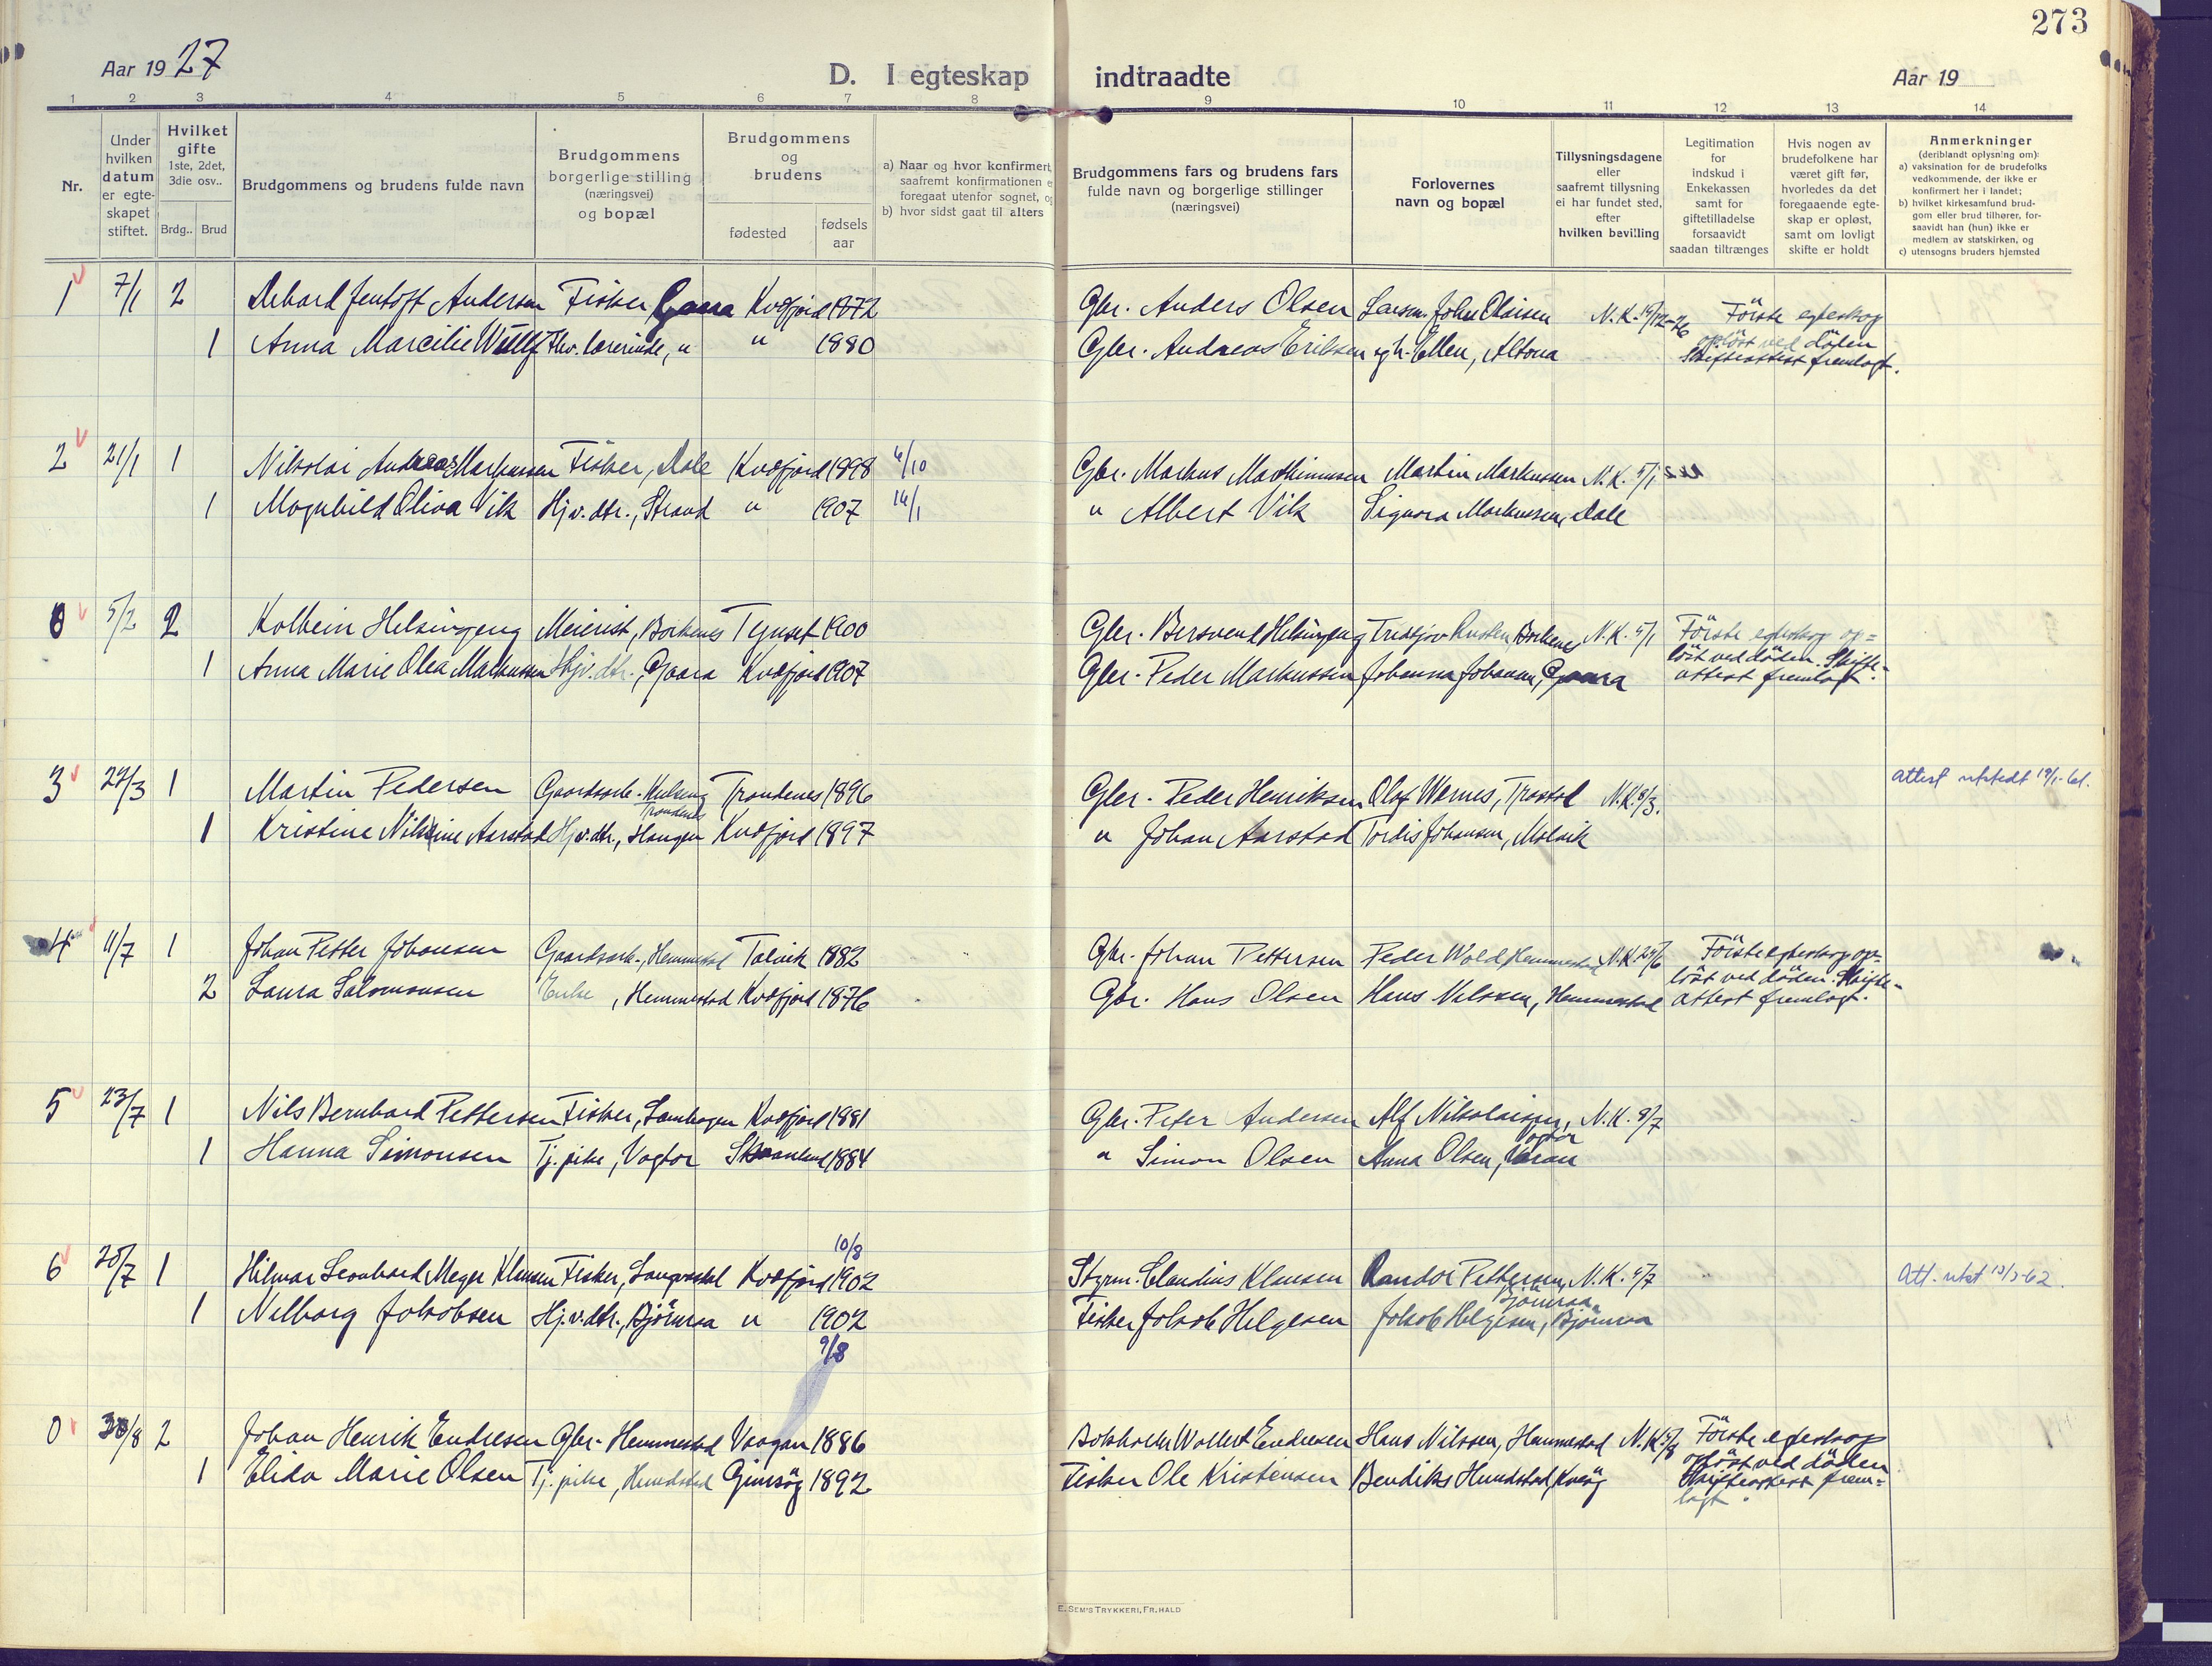 273
Aar 19 27
D. I egteskap indtraadte
Aar 19
1 2 3 4 5 6 7 8 9 10 11 12 13 14
Nr.
Under hvilken datum er egte-skapet stiftet.
Hvilket gifte 1ste, 2det, 3die osv..
Brdg.. Brud
Brudgommens og brudens fulde navn
Brudgommens borgerlige stilling (næringsvei) og bopæl
Brudgommens og brudens
fødested
fødsels aar
a) Naar og hvor konfirmert, saafremt konfirmationen foregaat utenfor sognet,
b) hvor sidst gaat til alters
Brudgommens fars og brudens fars fulde navn og borgerlige stillinger (næringsvei)
Forlovernes navn og bopæl
Tillysningsdagene eller saafremt tillysning ei har fundet sted, efter hvilken bevilling
Legitimation for indskud i Enkekassen samt for giftetilladelse forsaavidt saadan tiltrænges
Hvis nogen av brudefolkene har været gift før, hvorledes da det foregaaende egte-skap er opløst, samt om lovligt skifte er holdt
Anmerkninger (deriblandt oplysning om):
a) vaksination for de brudefolks vedkommende, der ikke er konfirmert her i landet;
b) hvilket kirkesamfund brud-gom eller brud tilhører, for-saavidt han (hun) ikke er medlem av statskirken, og
c) utensogns bruders hjemsted
1 7/1 2 Jentoft Andersen Fisker Gaara Kvæfjord 1872 Gbr. Anders Olsen N.K. Förste egteskap
1 Anna Marcilie Wulff Fhv. lærerinde, " " 1880 Gbr. Andreas Eriksen og h. Ellen, Altona oplöst ved döden
Skifteattest fremlagt.
2 21/1 1 Nikolai Andreas Markussen Fisker, Dale Kvæfjord 1898 4/10 Gbr. Markus Martin Markussen N.K. 5/1
1 Magnhild Oliva Vik Hj.v. dtr., Strand " 1907 14/1 " Albert Vik Signora Markussen, Dale
0 5/2 2 Kolbein Helsingeng Meierist, Borkenes Tynset 1900 Gbr. Bersvend Helsingeng Borkenes N.K. 5/1 Förste egteskap op=
1 Anna Marie Olea Markussen Hj.v. dtr., Gaara Kvæfjord 1907 Gbr. Peder Markussen Johanna Johansen, Gaara löst ved döden. Skifte-
attest fremlagt.
3 27/3 1 Martin Pedersen Gaardsarb. Trondenes 1896 Gbr. Peder Henriksen Olaf Wernes, N.K. 8/3. Attest utstedt 19/1-61.
Trondenes
1 Kristine Nilsine Aarstad Hj.v. dtr., Haugen Kvæfjord 1897 " Johan Aarstad Tordis Johansen, Molvik
4 11/7 1 Johan Petter Johansen Gaardsarb., Hemmestad Talvik 1882 Gbr. Johan Pettersen Peder Wold, Hemmestad N.K. 24/6 Förste egteskap op-
2 Laura Salomonsen Enke, Hemmestad Kvæfjord 1876 Gbr. Hans Olsen Hans Nilssen, Hemmestad löst ved döden. Skifte-
attest fremlagt.
5 23/7 1 Nils Bernhard Pettersen Fisker, Kvæfjord 1881 Gbr. Peter Andersen Alf Nikolaisen, N.K. 8/7
Vogtor
1 Hanna Simonsen Tj. pike, Vogtor Skaanland 1884 " Simon Olsen Anna Olsen,
10/8
6 20/7 1 Hilmar Leonhard Meyer Klausen Fisker, Kvæfjord 1902 Styrm. Claudius Klausen Randor Pettersen, N.K. 4/7 Att. utst 13/3-62.
Björnraa
1 Nelborg Jakobsen Hj.v. dtr., Björnraa " 1902 Fisker Jakob Helgesen Jakob Helgesen, Björnraa
9/8
0 30/8 2 Johan Henrik Endresen Gbr. Hemmestad Vaagan 1886 Endresen Hans Nilssen, Hemmestad N.K. Förste egteskap
1 Elida Marie Olsen Tj. pike, Hundstad Gimsöy 1892 Fisker Ole Kristensen Bendiks Hundstad, Kveöy oplöst ved döden
Skifteattest frem=
lagt.
E. SEM'S TRYKKERI, FR.HALD